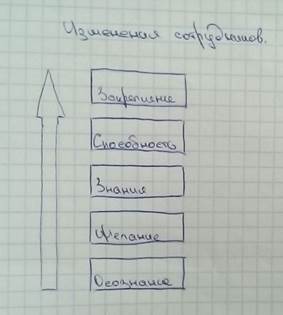 Изменения сотрудников.
Закрепление
Способность
Знания
Желание
Осознание